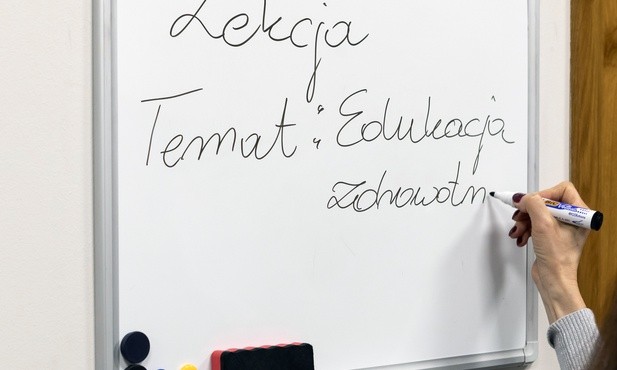 Lekcja
Temat: Edukacja
zdrowotn